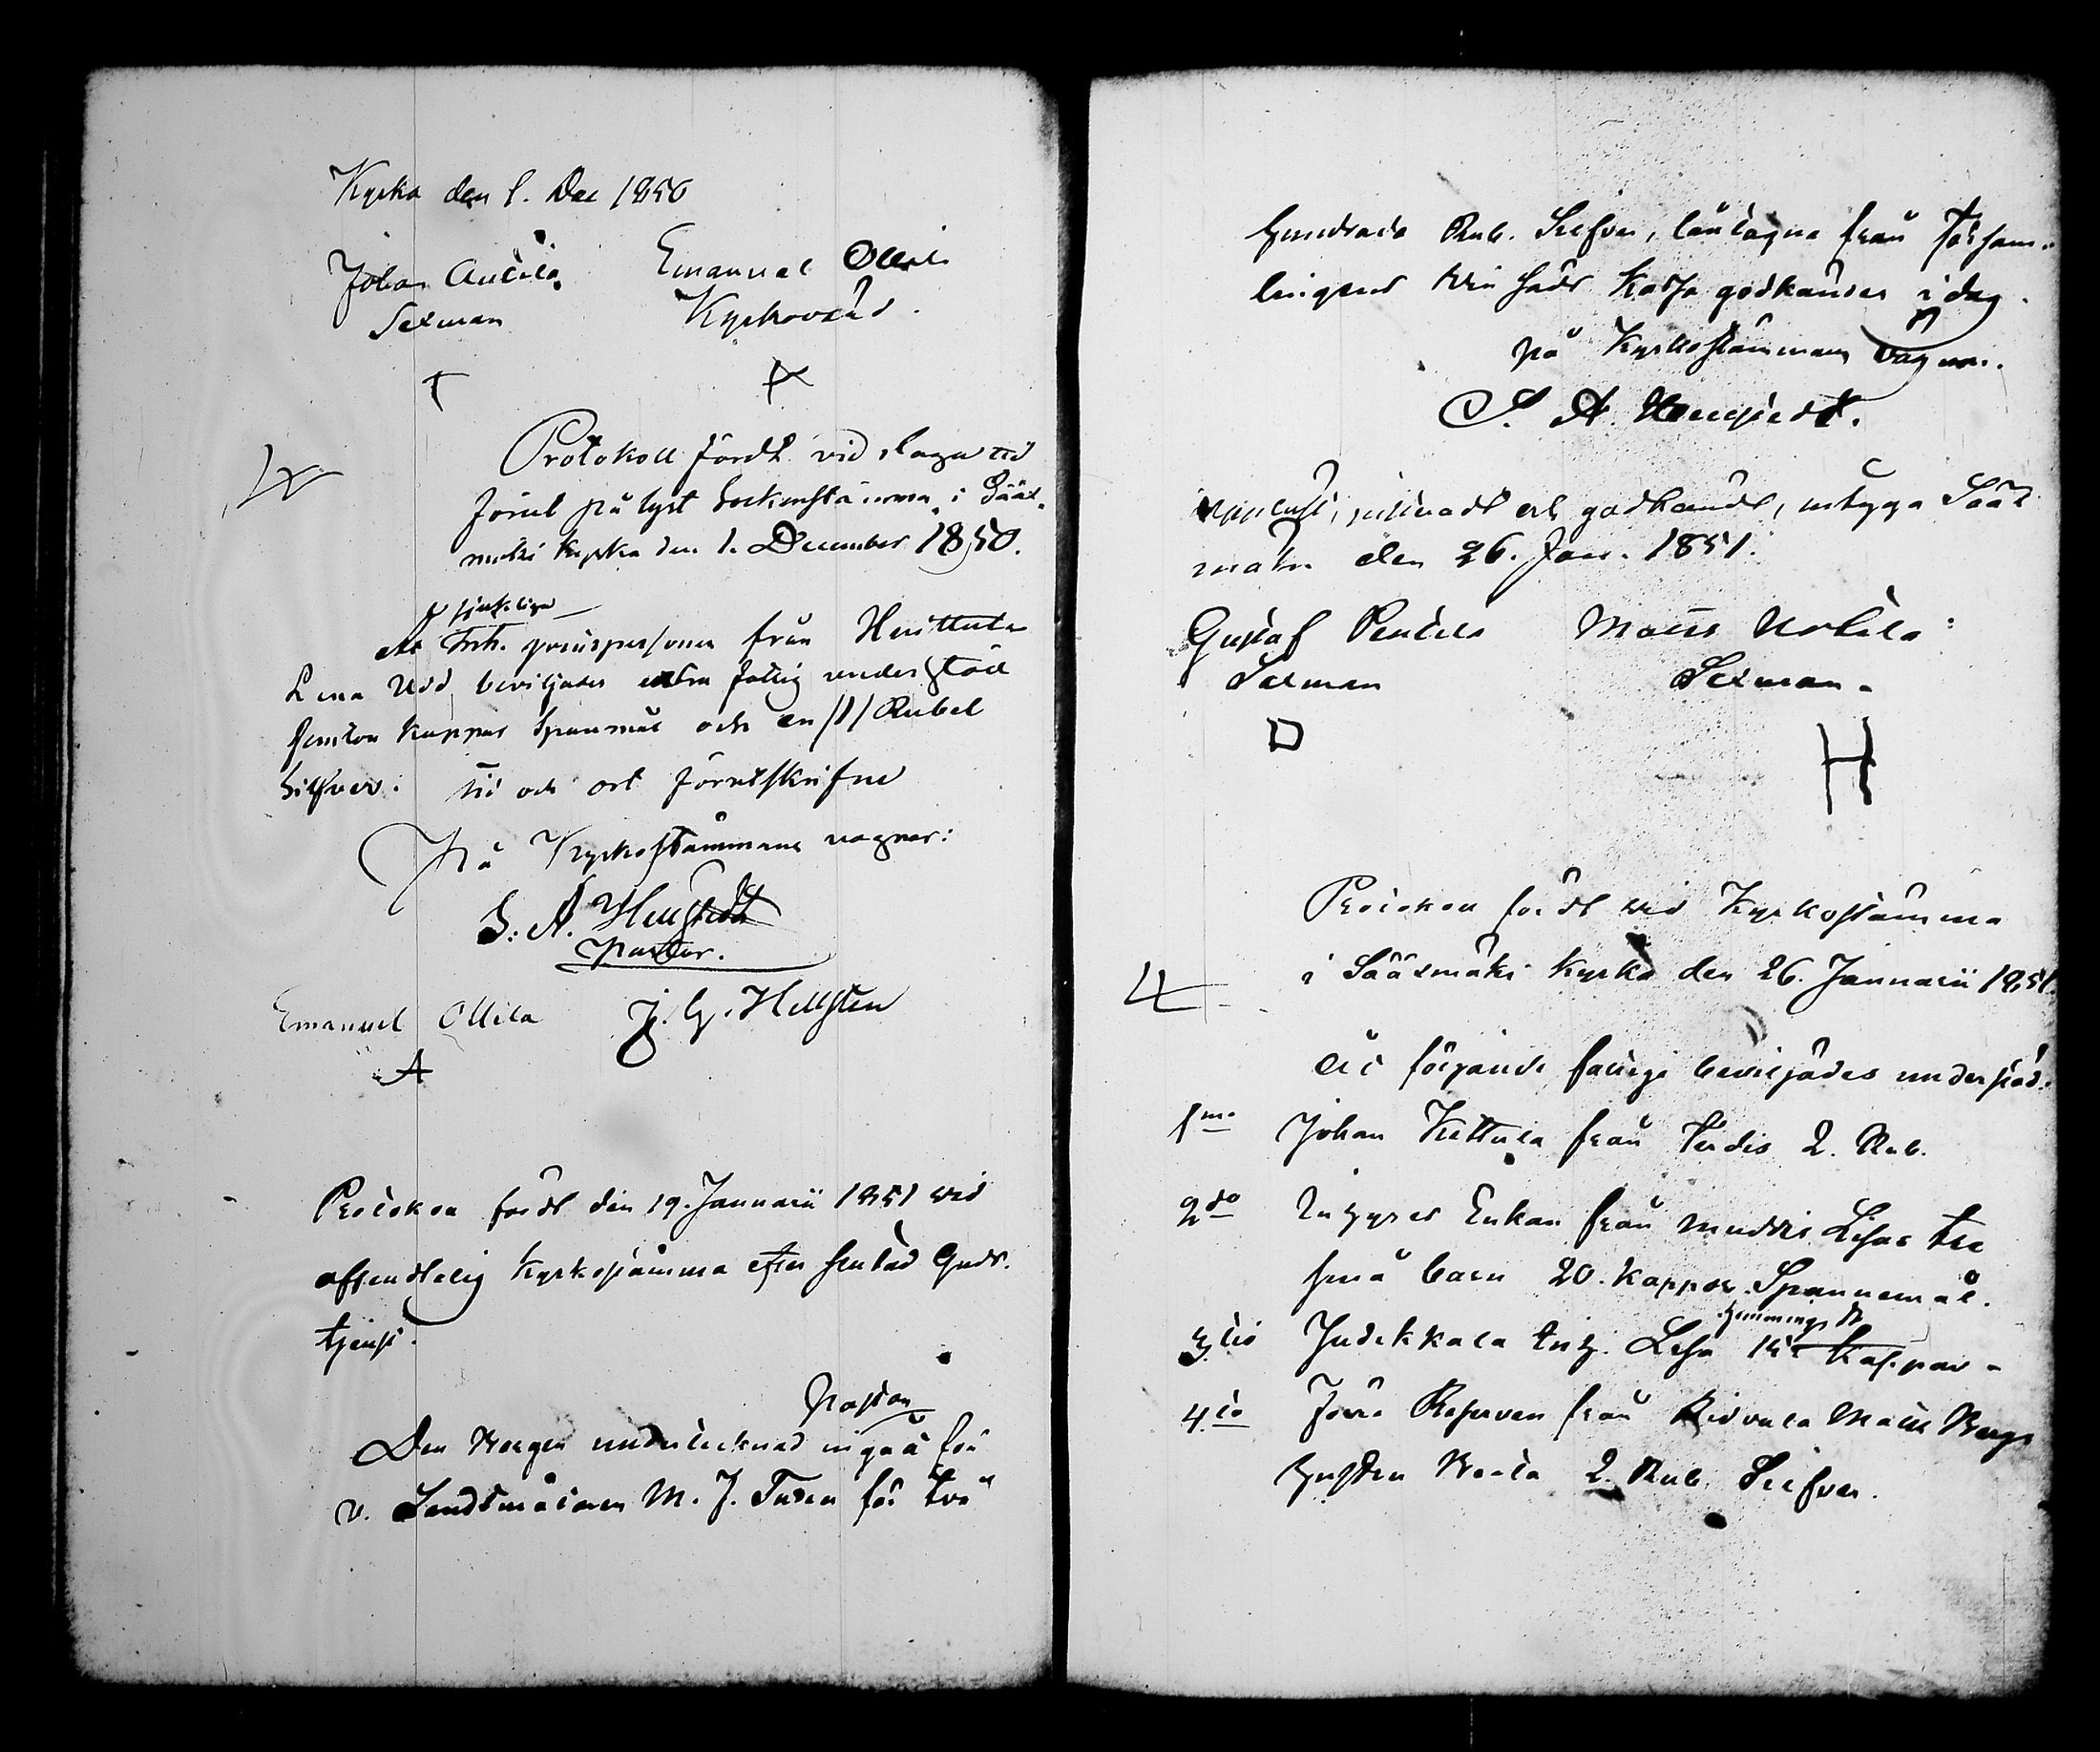 Kyrka den 1. Dec 1850
Johan Anttila Emanuel Ollila
Sexman Kyrkovärd.
Protokoll fördt vid laga tid
förut pålyst Sockenstämma i Sääx-
mäki kyrka den 1. December 1850.
sjukliga
Att Enk. från Huittula
Lena Udd, beviljades extra fattig understöd
femton kappar Spanmål och en /1/ Rubel
Silfver. tid och ort förutskrifne
På Kyrkostämmans vagnar:
S. A. Hengstedt
Pastor.
Emanuel Ollila J. G. Hellsten
Protokoll fördt den 19. Januarii 1851 wid
offendtelig Kyrkostämma efter slutad Guds-
tjenst.
Pastor
Den Borgen undertecknad ingått för
v. Landsmannen M. J. Turen för två
hundrade Rub. Silfver, låntagne från Församl-
lingens Kassa godkändes i dag.
på Kyrkostämmans vägnar.
S. A. Hengstedt.
Uppläst, justeradt och godkändt, intyga Sääx
mäki den 26. Jan. 1851.
Gustaf Penttila Matts Uotila
Sexman Sexman.
H
Protokoll fördt wid Kyrkostämma
i Sääxmäki Kyrka den 26. Januarii 1851.
Att följande fattige beviljades understöd:
1mo Johan Kettula från 2. Rub.
2do Enkan från Lisas tre
små barn 20. kappar Spannemål.
3tio Judikkala Enk. Lisa 15 Kappar
4to från Ridvala Matts
2. Rub. Silfver.